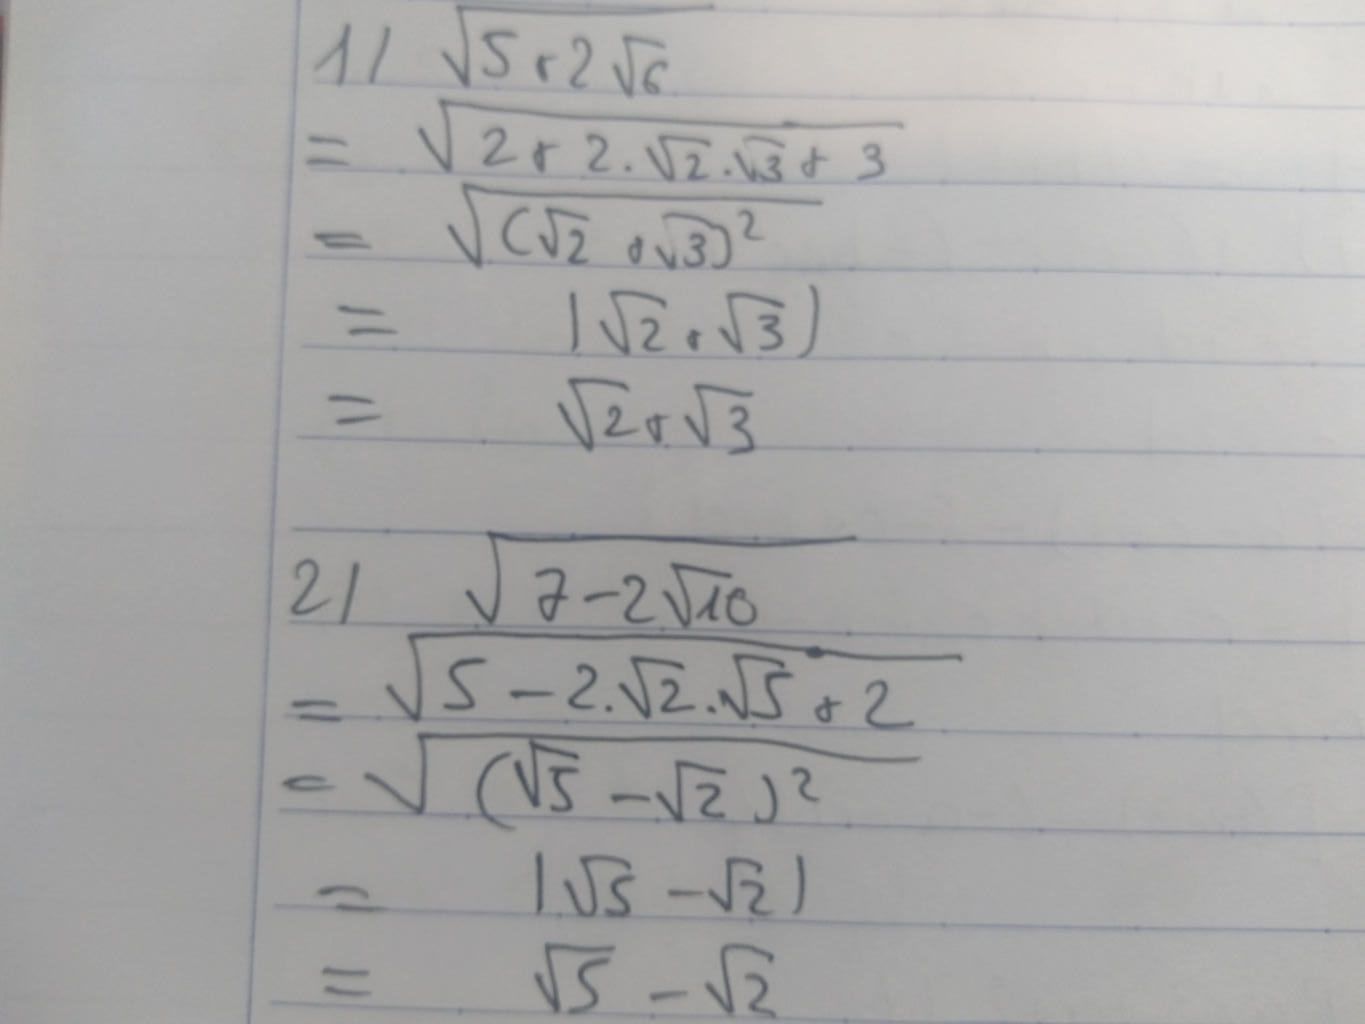 1/ √(5+2√6)
= √(2+2.√2.√3+3)
= √((√2+√3)²)
= |√2+√3|
= √2+√3
2/ √(7-2√10)
= √(5-2.√2.√5+2)
= √((√5-√2)²)
= |√5-√2|
= √5-√2